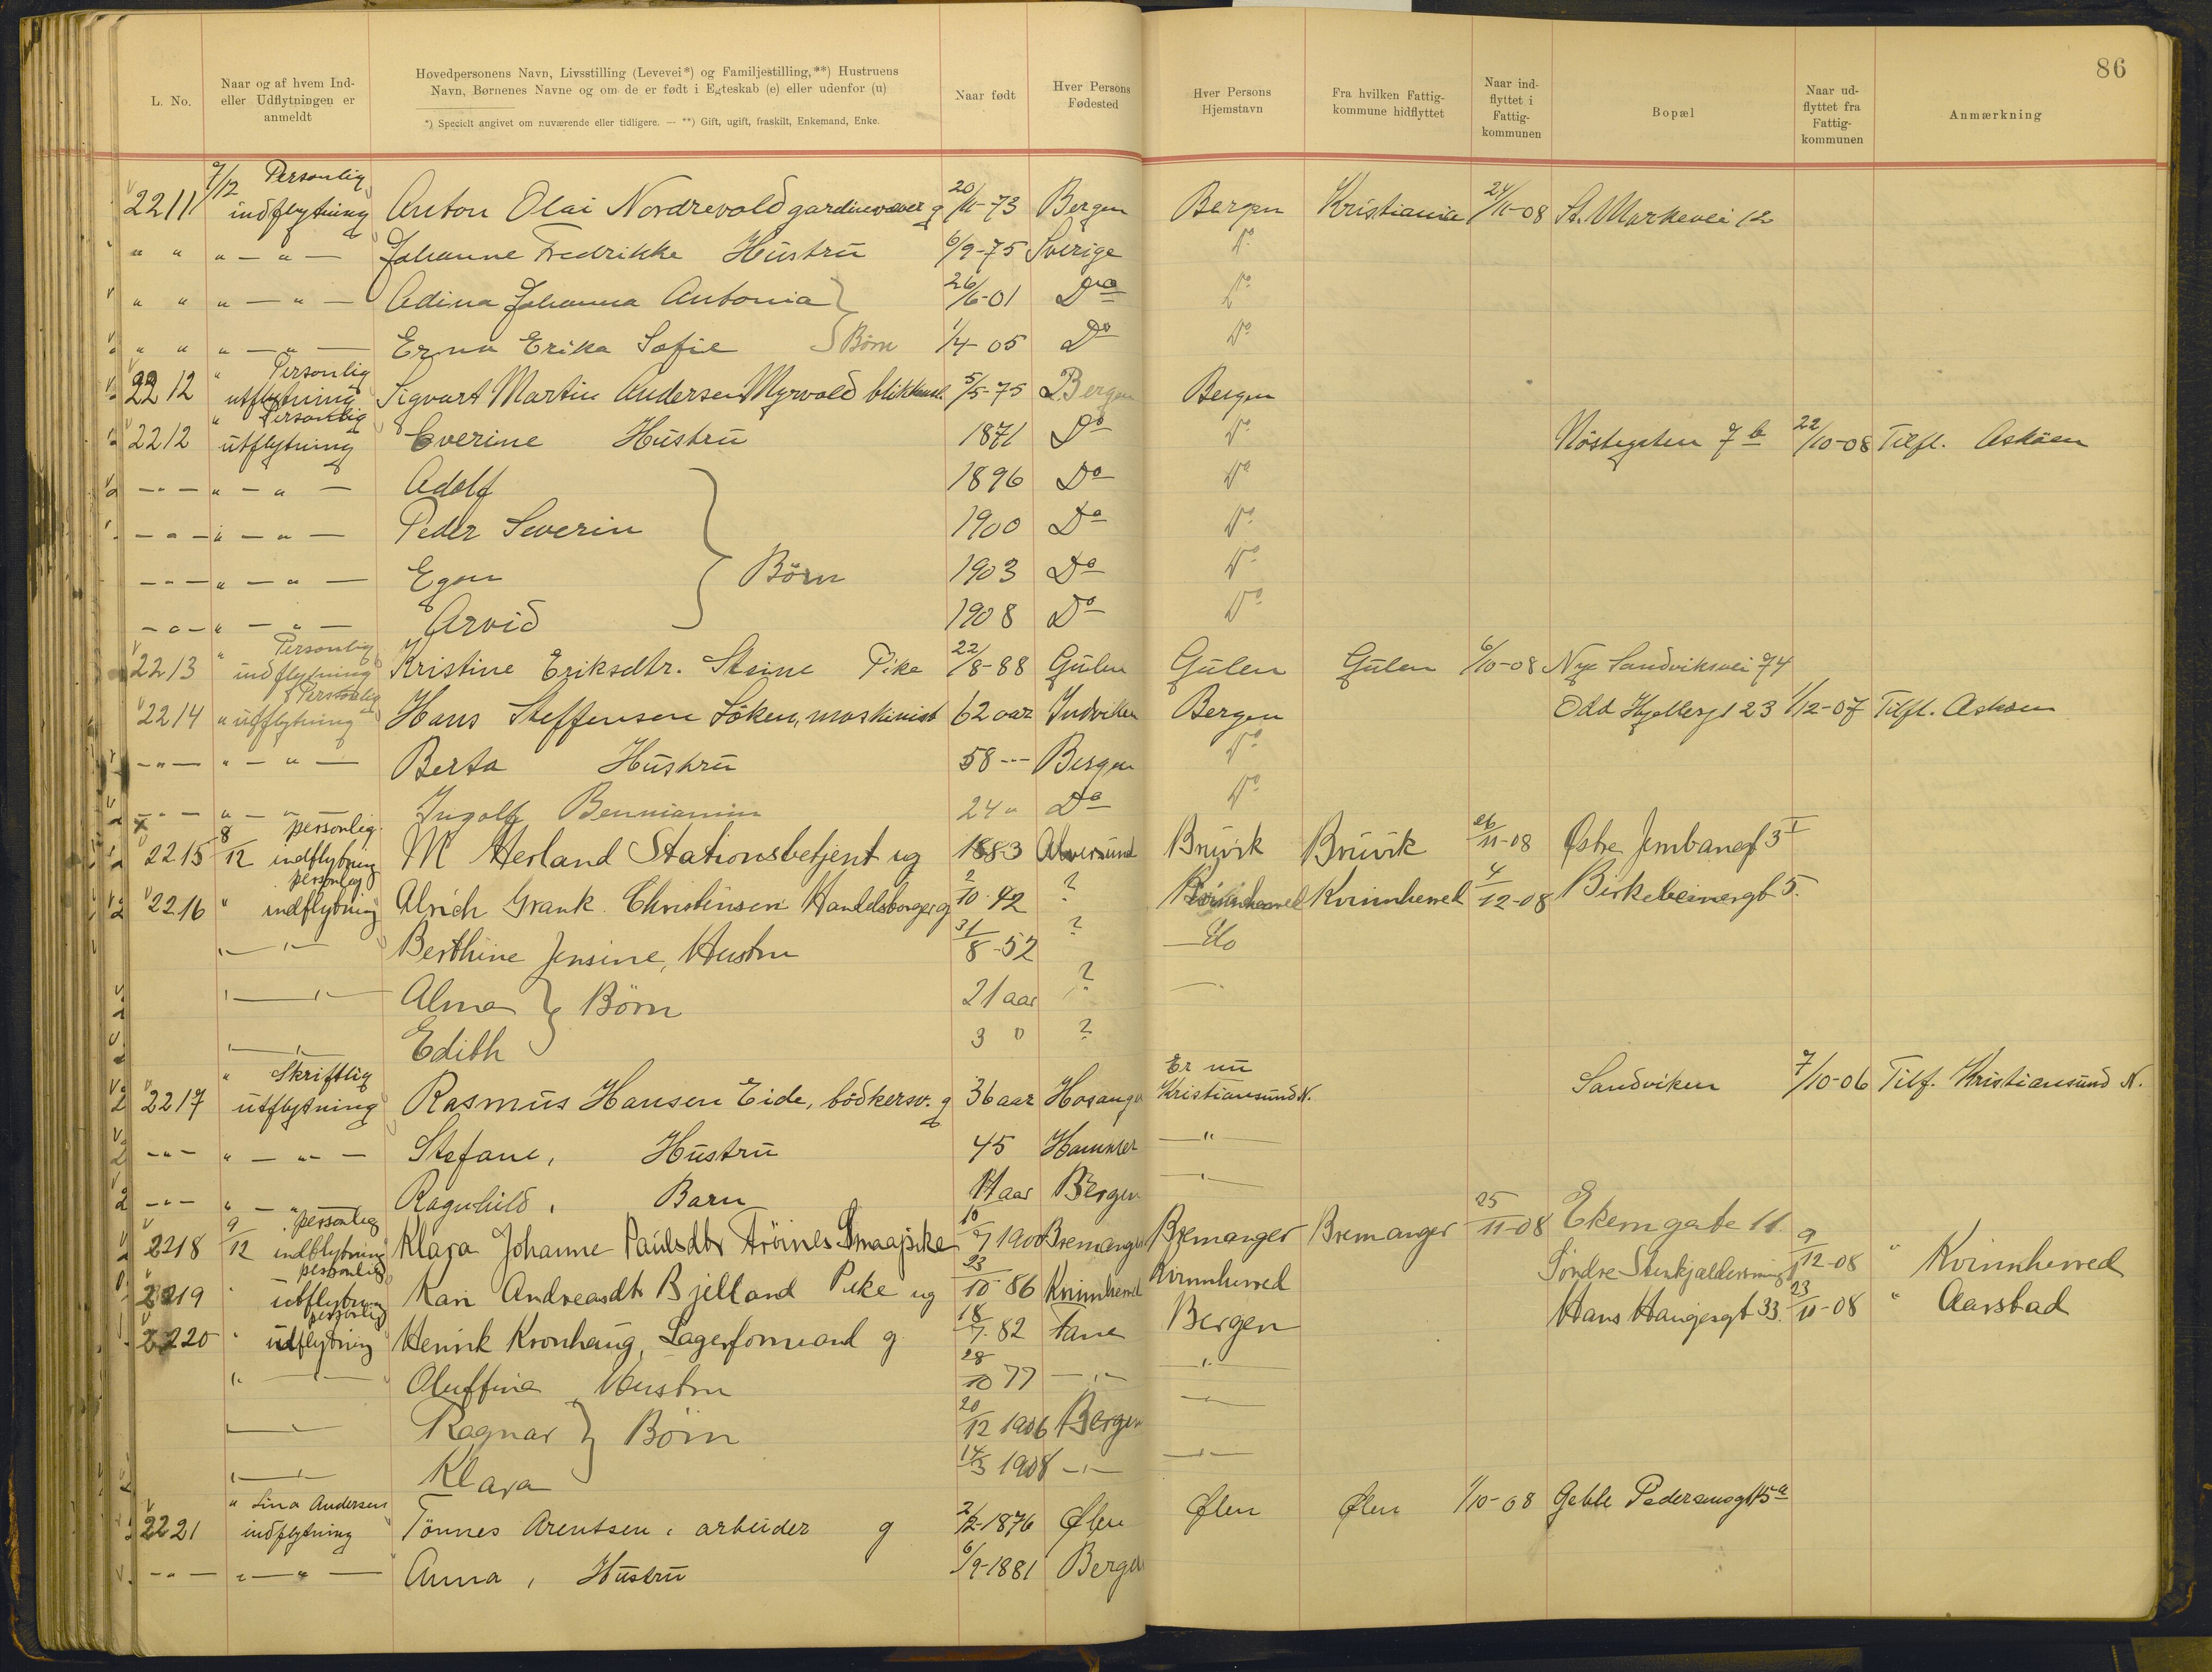 86
L. No.
Naar og af hvem Ind-
eller Udflytningen er
anmeldt
Høvedpersonens Navn, Livsstilling (Levevei*) og Familjestilling,**) Hustruens
Navn, Børnenes Navne og om de er født i Egteskab (e) eller udenfor (u)
*) Specielt angivet om nuværende eller tidligere. — **) Gift, ugift, fraskilt, Enkemand, Enke.
Naar født
Hver Persons
Fødested
Hver Persons
Hjemstavn
Fra hvilken Fattig-
kommune hidflyttet
Naar ind-
flyttet i
Fattig-
kommunen
Bopæl
Naar ud-
flyttet fra
Fattig-
kommunen
Anmærkning
2211 7/12 Personlig indflytning Anton Olai Nordrevold gardinevæver g 20/11-73 Bergen Bergen Kristiania 24/11-08 St. Markevei 12
" " " — " — Johanne Fredrikke Hustru 6/9-75 Sverige Do
" " " — " — Adina Johanna Antonia 26/6-01 Do Do
" " " — " — Erna Erika Sofie } Børn 1/4-05 Do Do
2212 " Personlig utflytning Sigvart Martin Andersen Myrvold blikkensl. 5/5-75 Bergen Bergen
2212 " Personlig utflytning Everine Hustru 1871 Do Do Nöstegaten 7 b 22/10-08 Tilfl. Asköen
— " — " — " — Adolf 1896 Do Do
— " — " — " — Peder Severin 1900 Do Do
— " — " — " — Egon } Börn 1903 Do Do
— " — " — " — Arvid 1908 Do Do
2213 " Personlig indflytning Kristine Eriksdtr. Steine Pike 22/8-88 Gulen Gulen Gulen 6/10-08 Nye Sandviksvei 74
2214 " Personlig utflytning Hans Steffensen Söken, maskinist 62 aar Indviken Bergen Odd Hjeltesgt 23 1/12-07 Tilfl. Asköen
— " — " — " — Berta Hustru 58 -"- Bergen Do
— " — " — " — Ingolf Benniamin 24 " Do Do
2215 8/12 personlig indflytning M Herland Stationsbetjent ug 1883 Alversund Bruvik Bruvik 26/11-08 Østre Jernbanegt 3 I
2216 " personlig indflytning Alrich Grank Christensen Handelsborger g 2/10-42 ? Kvinnherred Kvinnherred 4/12-08 Birkebeinergt 5.
— " — Berthine Jensine, Hustru 31/8-52 ? Do
— " — Alma } Børn 21 aar ? —
— " — Edith 3 " ?
2217 " Skriftlig utflytning Rasmus Hansen Eide, bödkersv. g 36 aar Hosanger Er nu Kristiansund N. Sandviken 7/10-06 Tilf. Kristiansund N.
— " — " — " — Stefane, Hustru 45 Hammer — " —
— " — " — " — Ragnhild, Barn 11 aar Bergen — " —
2218 9/12 personlig indflytning Klara Johanne Paulsdtr Fröines Smaapike 10/7 1900 Bremanger Bremanger Bremanger 25/11-08 Ekerngate 11
2219 " personlig utflytning Kari Andreasdtr Bjelland Pike ug 23/10-86 Kvinnherred Kvinnherred Söndre Stenkjeldersmug 9/12-08 " Kvinnherred
2220 " personlig utflytning Henrik Kronhaug, Lagerformand g 18/7-82 Fane Bergen Hans Haugesgt 33. 23/11-08 " Aarstad
" — — Oluffine Hustru 28/10 77 — " — — " —
— " — Ragnar } Börn 20/12 1906 Bergen — " —
— " — Klara 14/3 1908 — " — — " —
2221 " Lina Andersen indflytning Tönnes Arentsen, arbeider g 2/2-1876 Ølen Ølen Ølen 1/10-08 Geble Pedersensgt 15 a
— " — " — " — Anna, Hustru 6/9-1881 Bergen